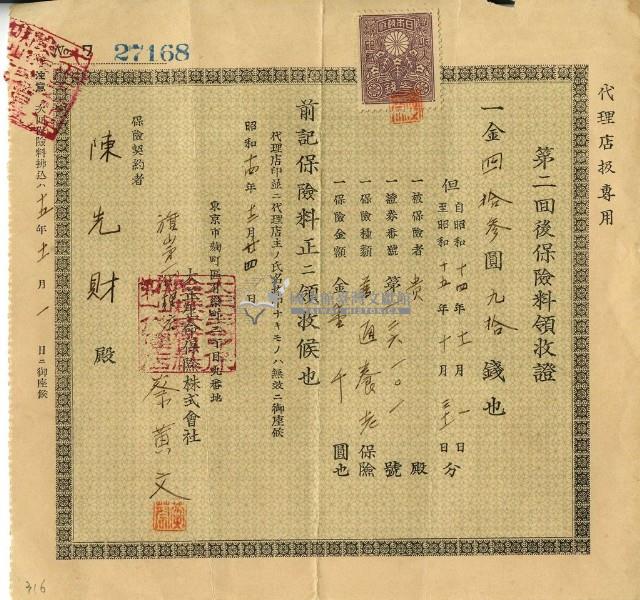 代理店扱専用
第二回後保險料領收證
一金四拾参圓九拾錢也
但 自昭和十四年十一月一日
至昭和十五年十月三十一日分
一被保險者 貴殿
一證券番號 第 號
一保險種類 普通養老保險
一保險金額 金壹千圓也
前記保險料正ニ領收候也
代理店印並ニ代理店主ノ氏名 ナキモノハ無效ニ御座候
昭和十四年十二月廿四日
東京市麹町區 丁目 番地
生命保險株式會社
蔡黄文
保險契約者
陳先財殿
注意 次回保險料拂込ハ十五年十一月一日ニ御座候
No. 7 27168
國史館臺灣文獻館
TAIWAN HISTORICA
316